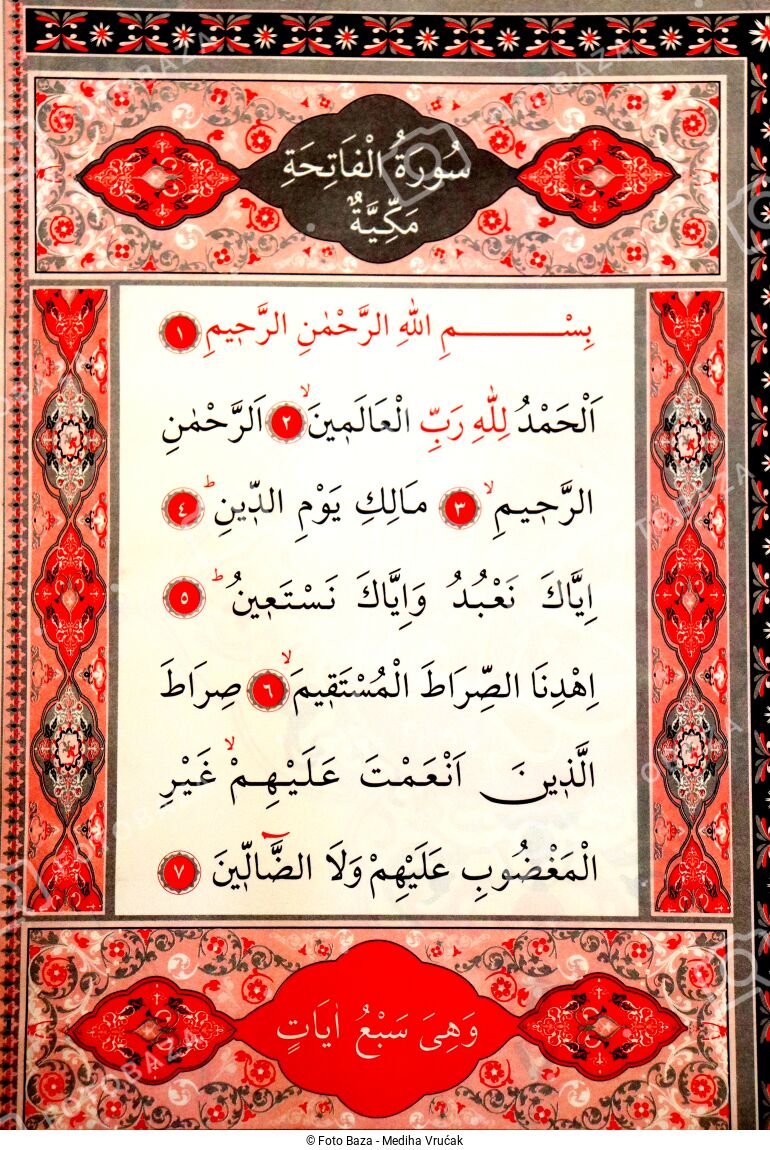 سُورَةُ الْفَاتِحَةِ
مَكِّيَّةٌ
بِسْــــــــمِ اللهِ الرَّحْمٰنِ الرَّحٖيمِ ١
اَلْحَمْدُ لِلّٰهِ رَبِّ الْعَالَمٖينَۙ ٢ اَلرَّحْمٰنِ
الرَّحٖيمِۙ ٣ مَالِكِ يَوْمِ الدّٖينِؕ ٤
اِيَّاكَ نَعْبُدُ وَاِيَّاكَ نَسْتَعٖينُؕ ٥
اِهْدِنَا الصِّرَاطَ الْمُسْتَقٖيمَۙ ٦ صِرَاطَ
الَّذٖينَ اَنْعَمْتَ عَلَيْهِمْۙ غَيْرِ
الْمَغْضُوبِ عَلَيْهِمْ وَلَا الضَّٓالّٖينَ ٧
وَهِىَ سَبْعُ اٰيَاتٍ
FOTOBAZA
© Foto Baza - Mediha Vrućak